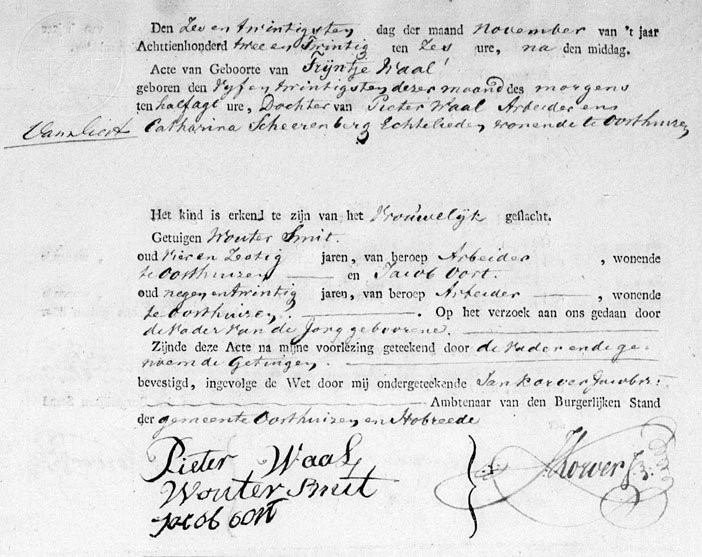 Den Zeven twintigsten dag der maand November van 't jaar
Achttienhonderd twee en Twintig ten Zes ure, na den middag.
Acte van Geboorte van Trijntje Waal
geboren den Vyf en twintigsten dezer maand des morgens
ten half agt ure, Dochter van Pieter Waal Arbeider en
Catharina Scheerenberg Echtelieden wonende te Oosthuizen
Het kind is erkend te zijn van het Vrouwelyk geslacht.
Getuigen Wouter Smit.
oud Vier en Zestig jaren, van beroep Arbeider, wonende
te Oosthuizen en Jacob Oort.
oud negen en twintig jaren, van beroep Arbeider, wonende
te Oosthuizen. Op het verzoek aan ons gedaan door
de Vader van de Jong geboorene.
Zijnde deze Acte na mijne voorlezing geteekend door de Vader en de ge-
noemde Getuigen.
bevestigd, ingevolge de Wet door mij ondergeteekende Jan Korver Jacobsz:
Ambtenaar van den Burgerlijken Stand
der gemeente Oosthuizen en Hobreede
Pieter Waal
Wouter Smit
Jacob oort
J Korver Jz: